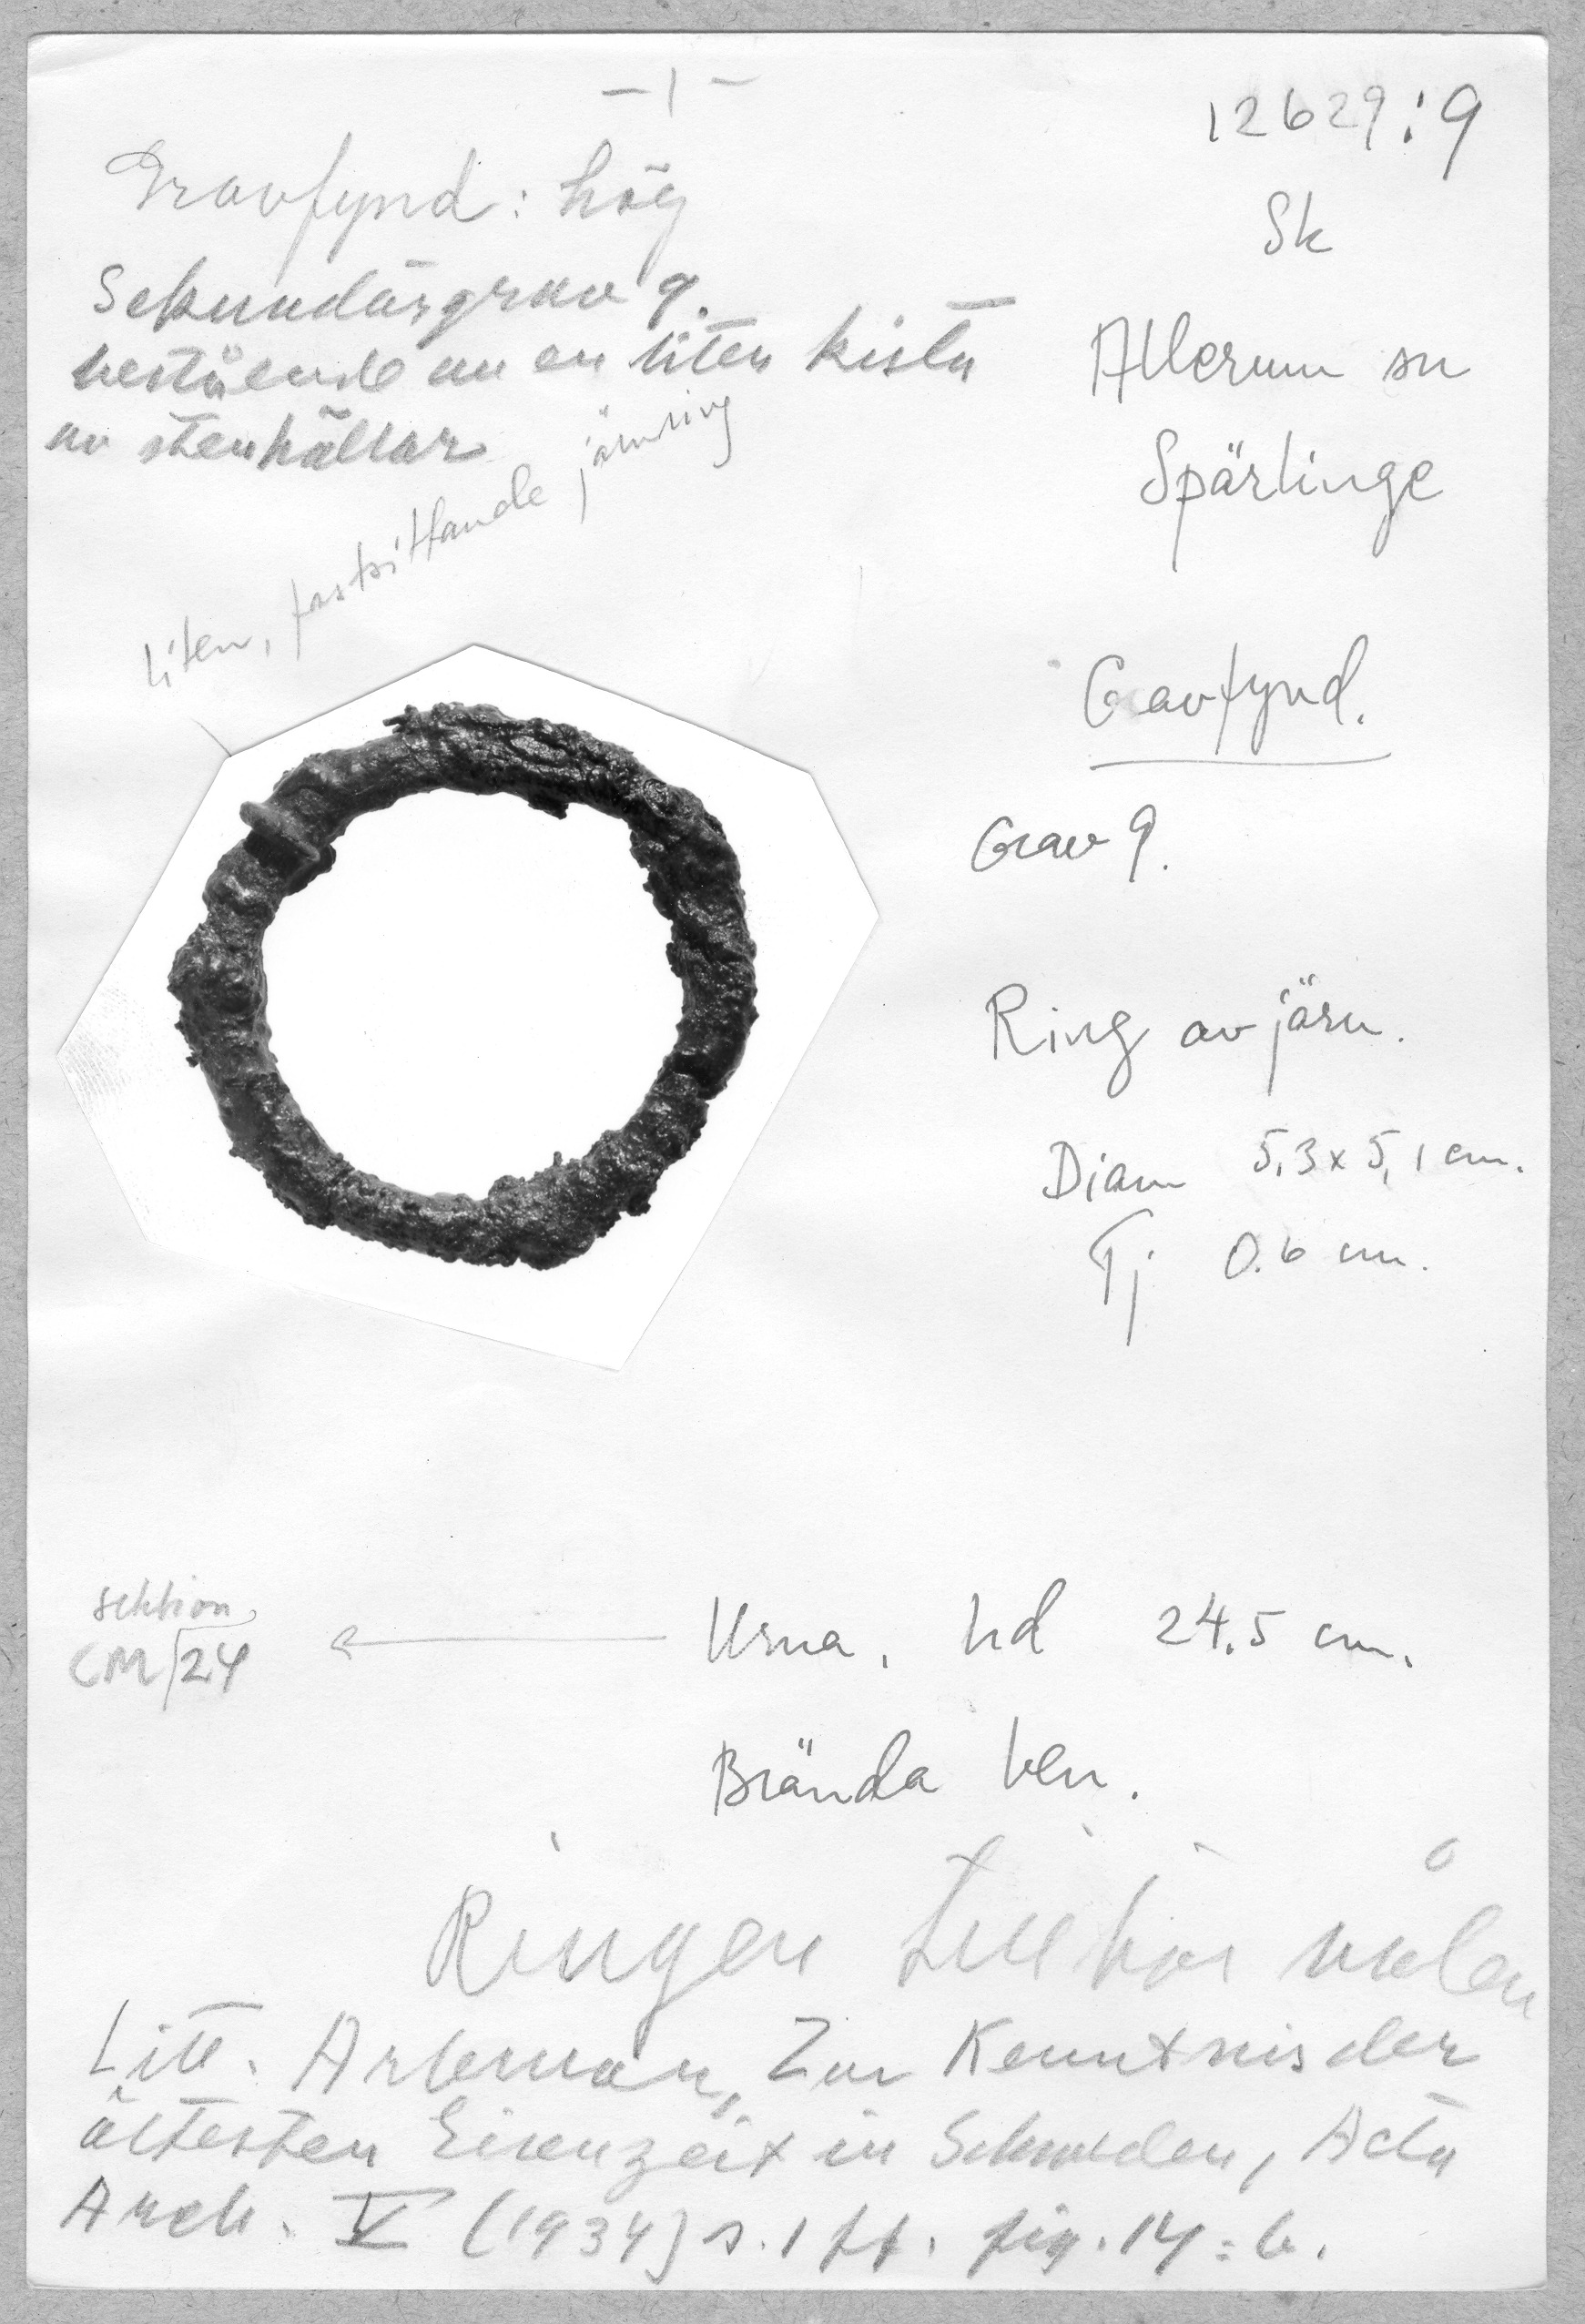 – 1 –
12629:9
Gravfynd: hög
Sk
Sekundärgrav 9.
bestående av en liten kista
av stenhällar
Allerum sn
Spärlinge
liten, fastsittande järnring
Gravfynd.
Grav 9.
Ring av järn.
Diam 5,3 x 5,1 cm.
Tj 0.6 cm.
sektion
CM/24
Urna. hd 24.5 cm.
Brända ben.
Ringen tillhör nålen
Litt. Arbman, Zur Kenntnis der
ältesten Eisenzeit in Schweden, Acta
Arch. V (1934) s. 1 ff. fig. 14:6.